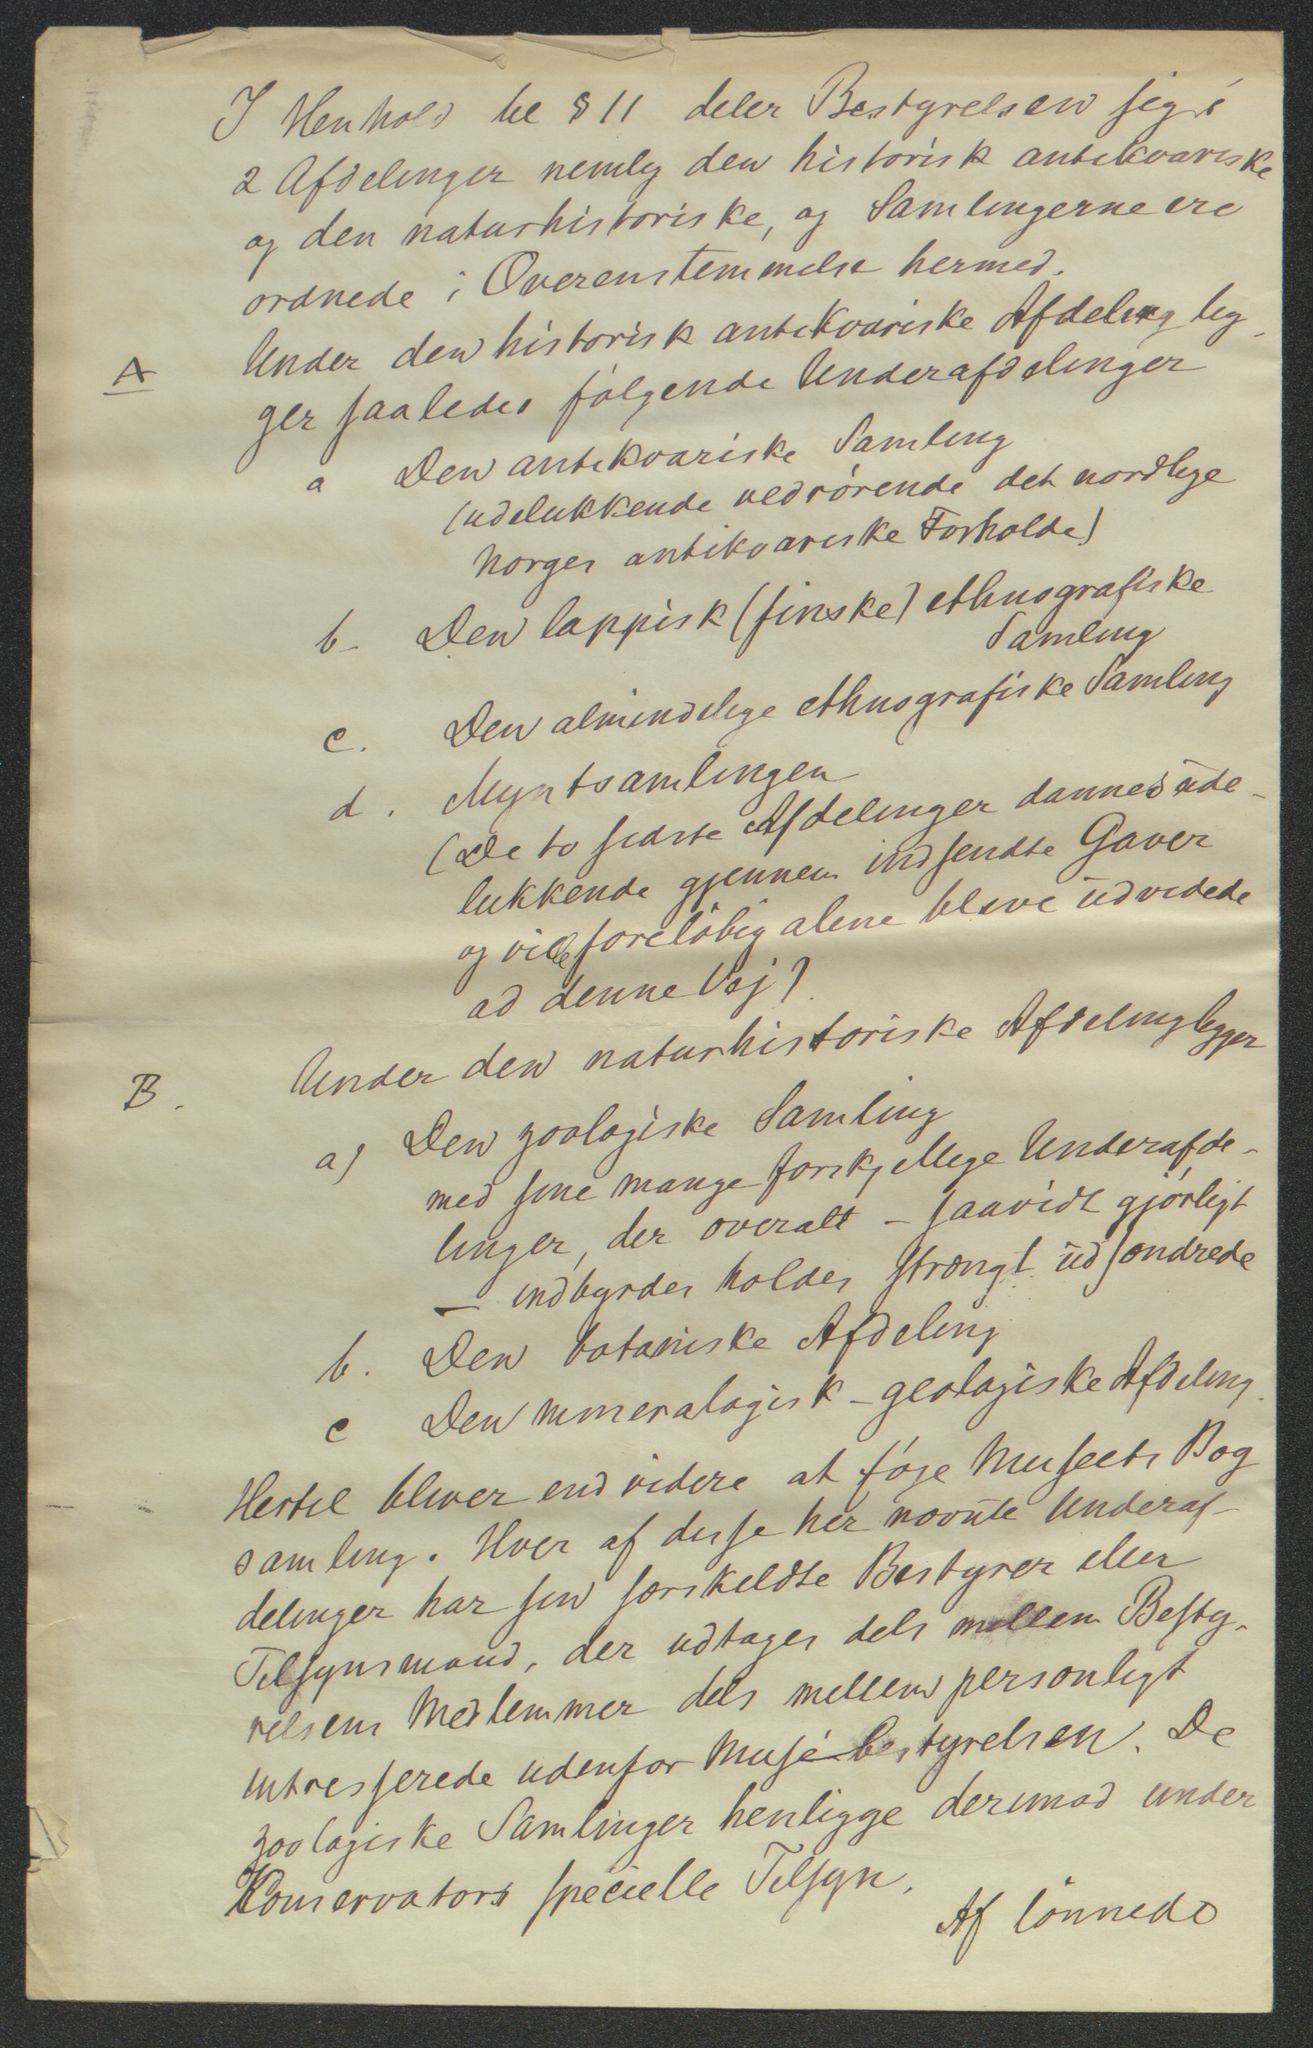 I Henhold til § 11 deler Bestyrelsen sig i
2 Afdelinger nemlig den historisk antikvariske
og den naturhistoriske, og Samlingerne ere
ordnede i Overenstemmelse hermed.
A Under den historisk antikvariske Afdeling lig-
ger saaledes følgende Underafdelinger
a Den antikvariske Samling
(udelukkende vedrørende det nordlige
Norges antikvariske Forholde)
b- Den lappisk (finske) ethnografiske
Samling
c. Den almindelige ethnografiske Samling
d. Myntsamlingen
(De to sidste Afdelinger dannes ude-
lukkende gjennem indsendte Gaver
og ville foreløbig alene blive udvidede
ad denne Vej)
B. Under den naturhistoriske Afdeling ligger
a) Den zoologiske Samling
med sine mange forskjellige Underafde-
linger, der overalt - saavidt gjørligt
- indbyrdes holdes strængt udsondrede
b. Den botaniske Afdeling
c Den mineralogisk-geologiske Afdeling.
Hertil bliver end videre at føje Museets Bog
samling. Hver af disse her nævnte Underaf-
delinger har sin særskildte Bestyrer eller
Tilsynsmand, der udtages dels mellem Besty-
relsens Medlemmer dels mellem personligt
intresserede udenfor Musébestyrelsen. De
zoologiske Samlinger henligge derimod under
Konservators specielle Tilsyn.
Af lønnede